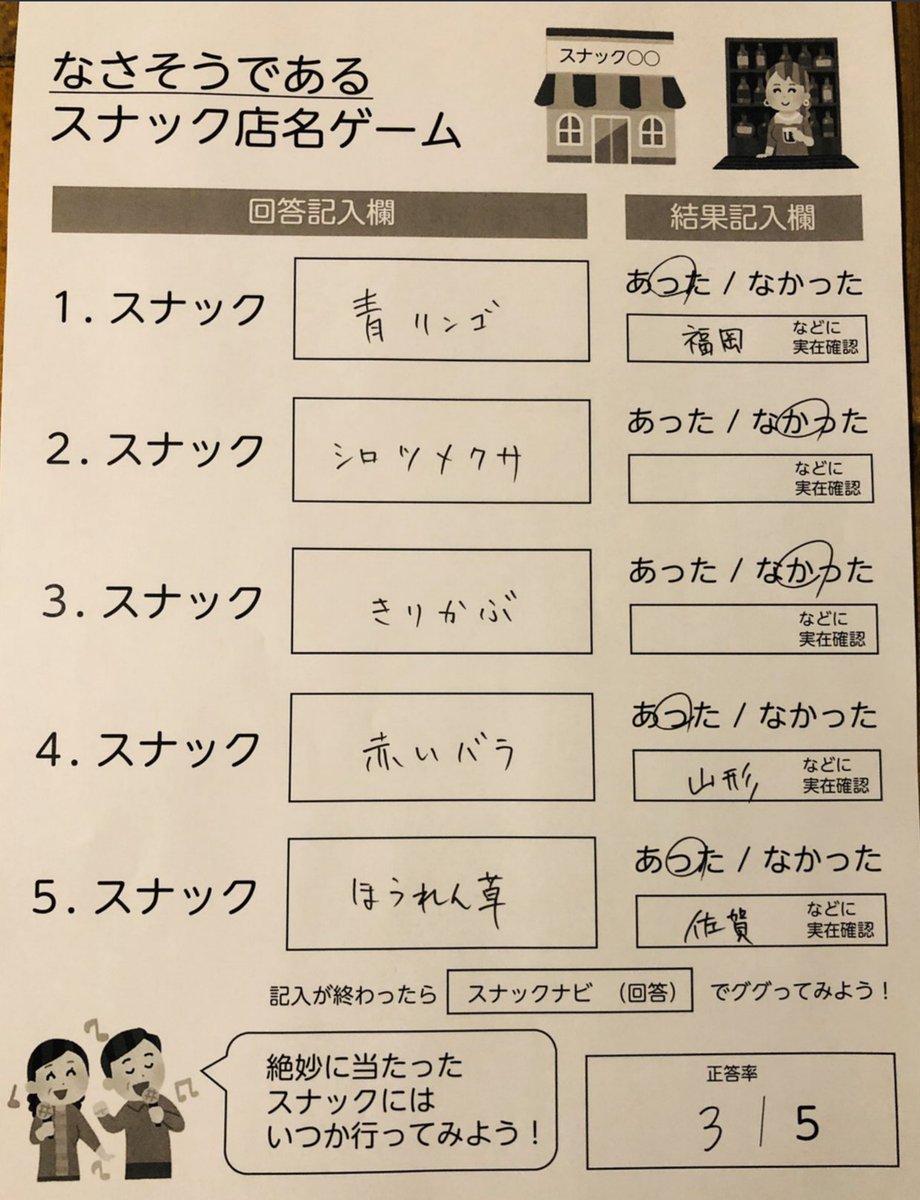 なさそうである
スナック店名ゲーム
スナック○○
回答記入欄
結果記入欄
1. スナック 青リンゴ
あった / なかった
福岡 などに
実在確認
2. スナック シロツメクサ
あった / なかった
などに
実在確認
3. スナック きりかぶ
あった / なかった
などに
実在確認
4. スナック 赤いバラ
あった / なかった
山形 などに
実在確認
5. スナック ほうれん草
あった / なかった
佐賀 などに
実在確認
記入が終わったら スナックナビ (回答) でググってみよう!
絶妙に当たった
スナックには
いつか行ってみよう!
正答率
3 / 5